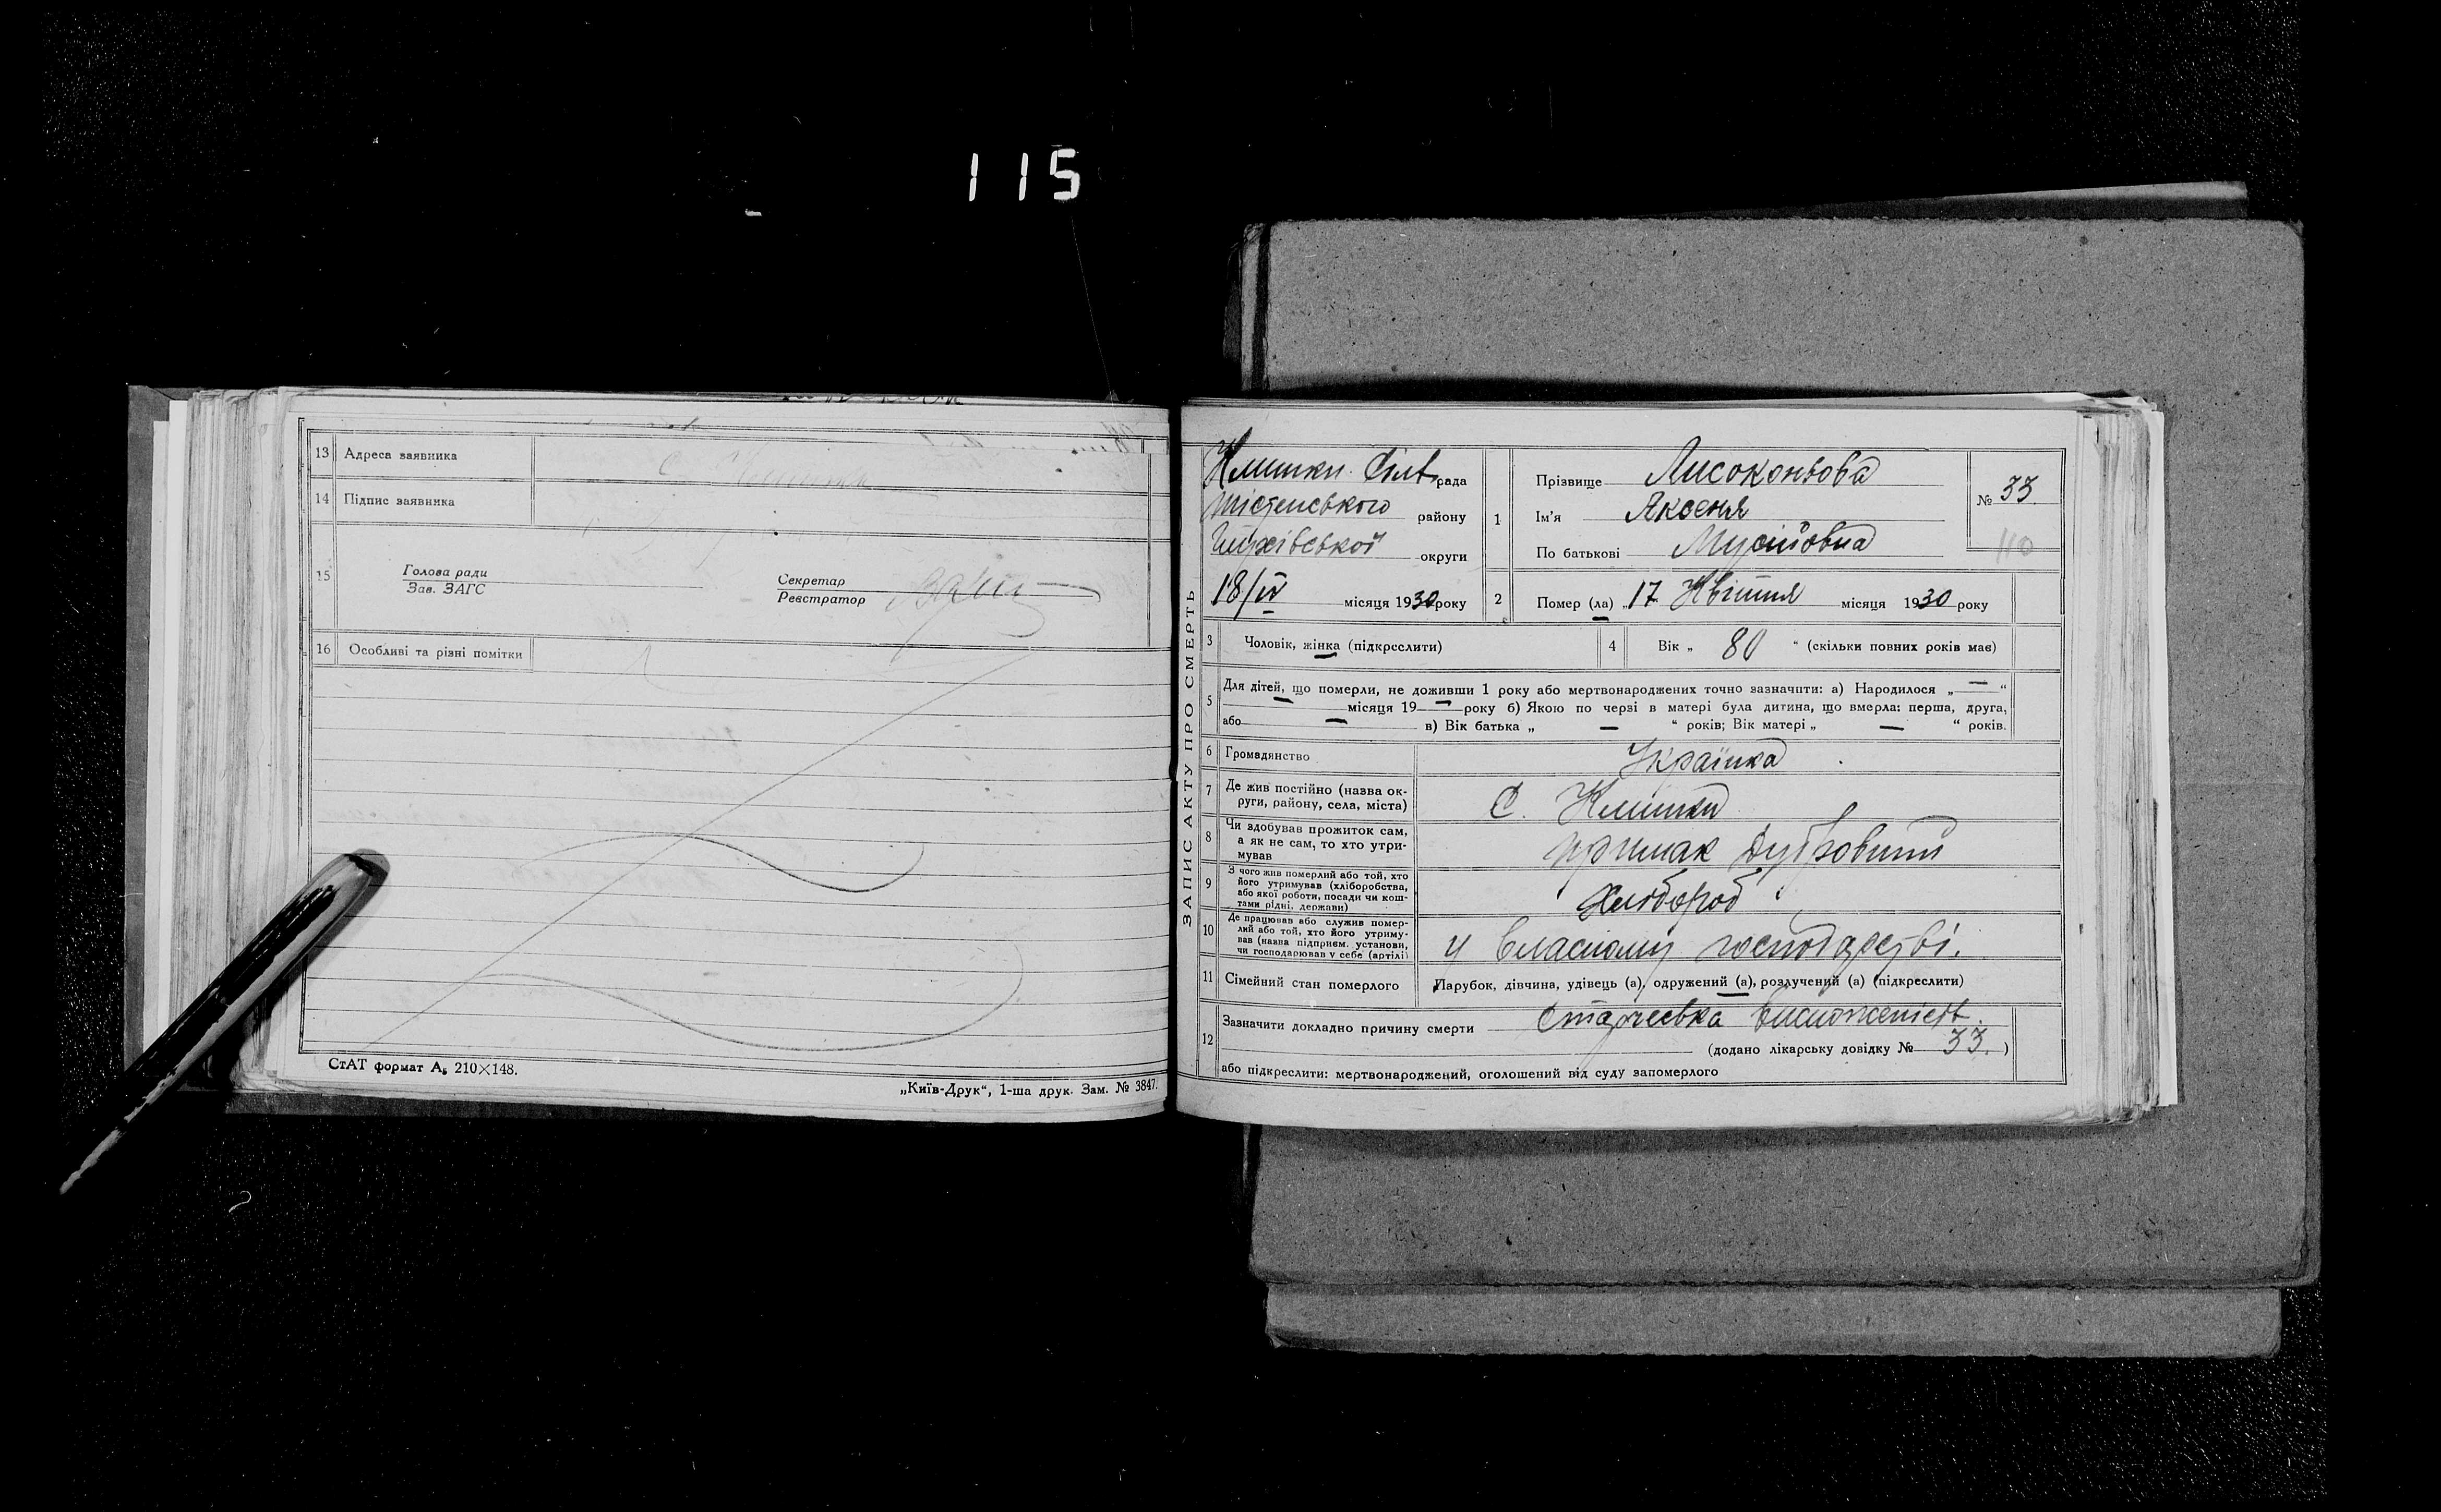 115
13 Адреса заявника
14 Підпис заявника
15 Голова ради
Зав. ЗАГС
Секретар
Реєстратор
16 Особливі та різні помітки
СтАТ формат А5 210×148.
„Київ-Друк“, 1-ша друк. Зам. № 3847.
ЗАПИС АКТУ ПРО СМЕРТЬ
Клишки Сіль рада
району
округи
18/IV місяця 1930 року
1 Прізвище Лисоконьова
Ім'я Аксенія
По батькові Мусіївна
№ 33
110
2 Помер (ла) „17 Квітня місяця 1930 року
3 Чоловік, жінка (підкреслити)
4 Вік „ 80 “ (скільки повних років має)
5 Для дітей, що померли, не доживши 1 року або мертвонароджених точно зазначити: а) Народилося „ — “
— місяця 19 — року б) Якою по черзі в матері була дитина, що вмерла: перша, друга,
або — в) Вік батька „ — “ років; Вік матері „ — “ років.
6 Громадянство Українка
7 Де жив постійно (назва ок-
руги, району, села, міста) С. Клишки
8 Чи здобував прожиток сам,
а як не сам, то хто утри-
мував
9 З чого жив померлий або той, хто
його утримував (хліборобства,
або якої роботи, посади чи кош-
тами рідні, держави) Хлібороб
10 Де працював або служив помер-
лий або той, хто його утриму-
вав (назва підприєм. установи,
чи господарював у себе (артілі) у власному господарстві.
11 Сімейний стан померлого Парубок, дівчина, удівець (а), одружений (а), розлучений (а) (підкреслити)
12 Зазначити докладно причину смерти Старчеська виснаженість.
(додано лікарську довідку № 33.)
або підкреслити: мертвонароджений, оголошений від суду запомерлого